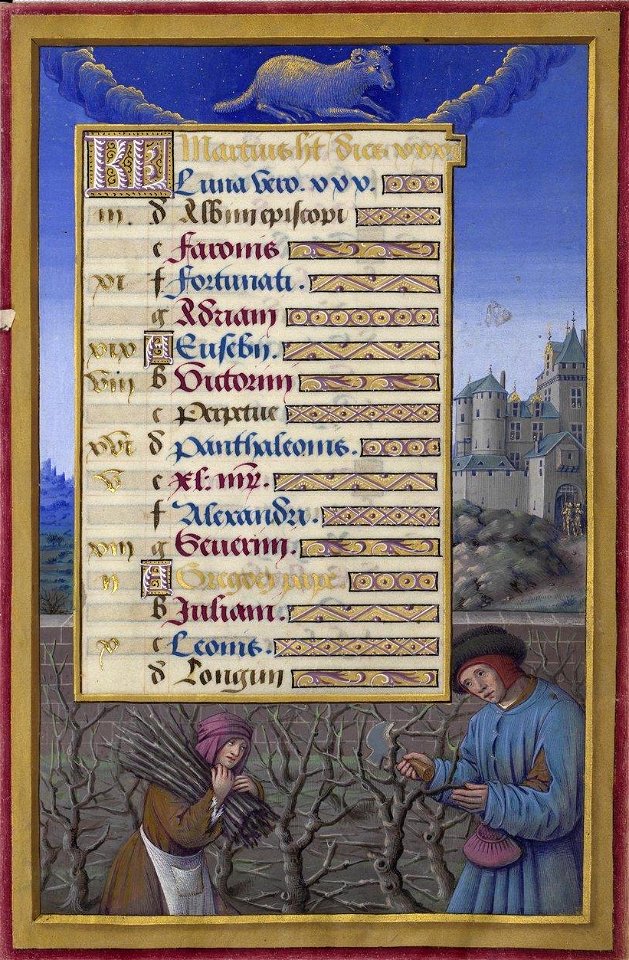 KL Martius ht dies xxxi
Luna vero. xxx.
iii. d Albini episcopi
e Faronis
xi f Fortunati.
g Adriani
xix A Eusebii.
viii b Victorini
c Perpetue
xvi d Panthaleonis.
v e xl. mr.
f Alexandri.
xiii g Severini.
ii A Gregorii pape.
b Juliani.
x c Leonis.
d Longini